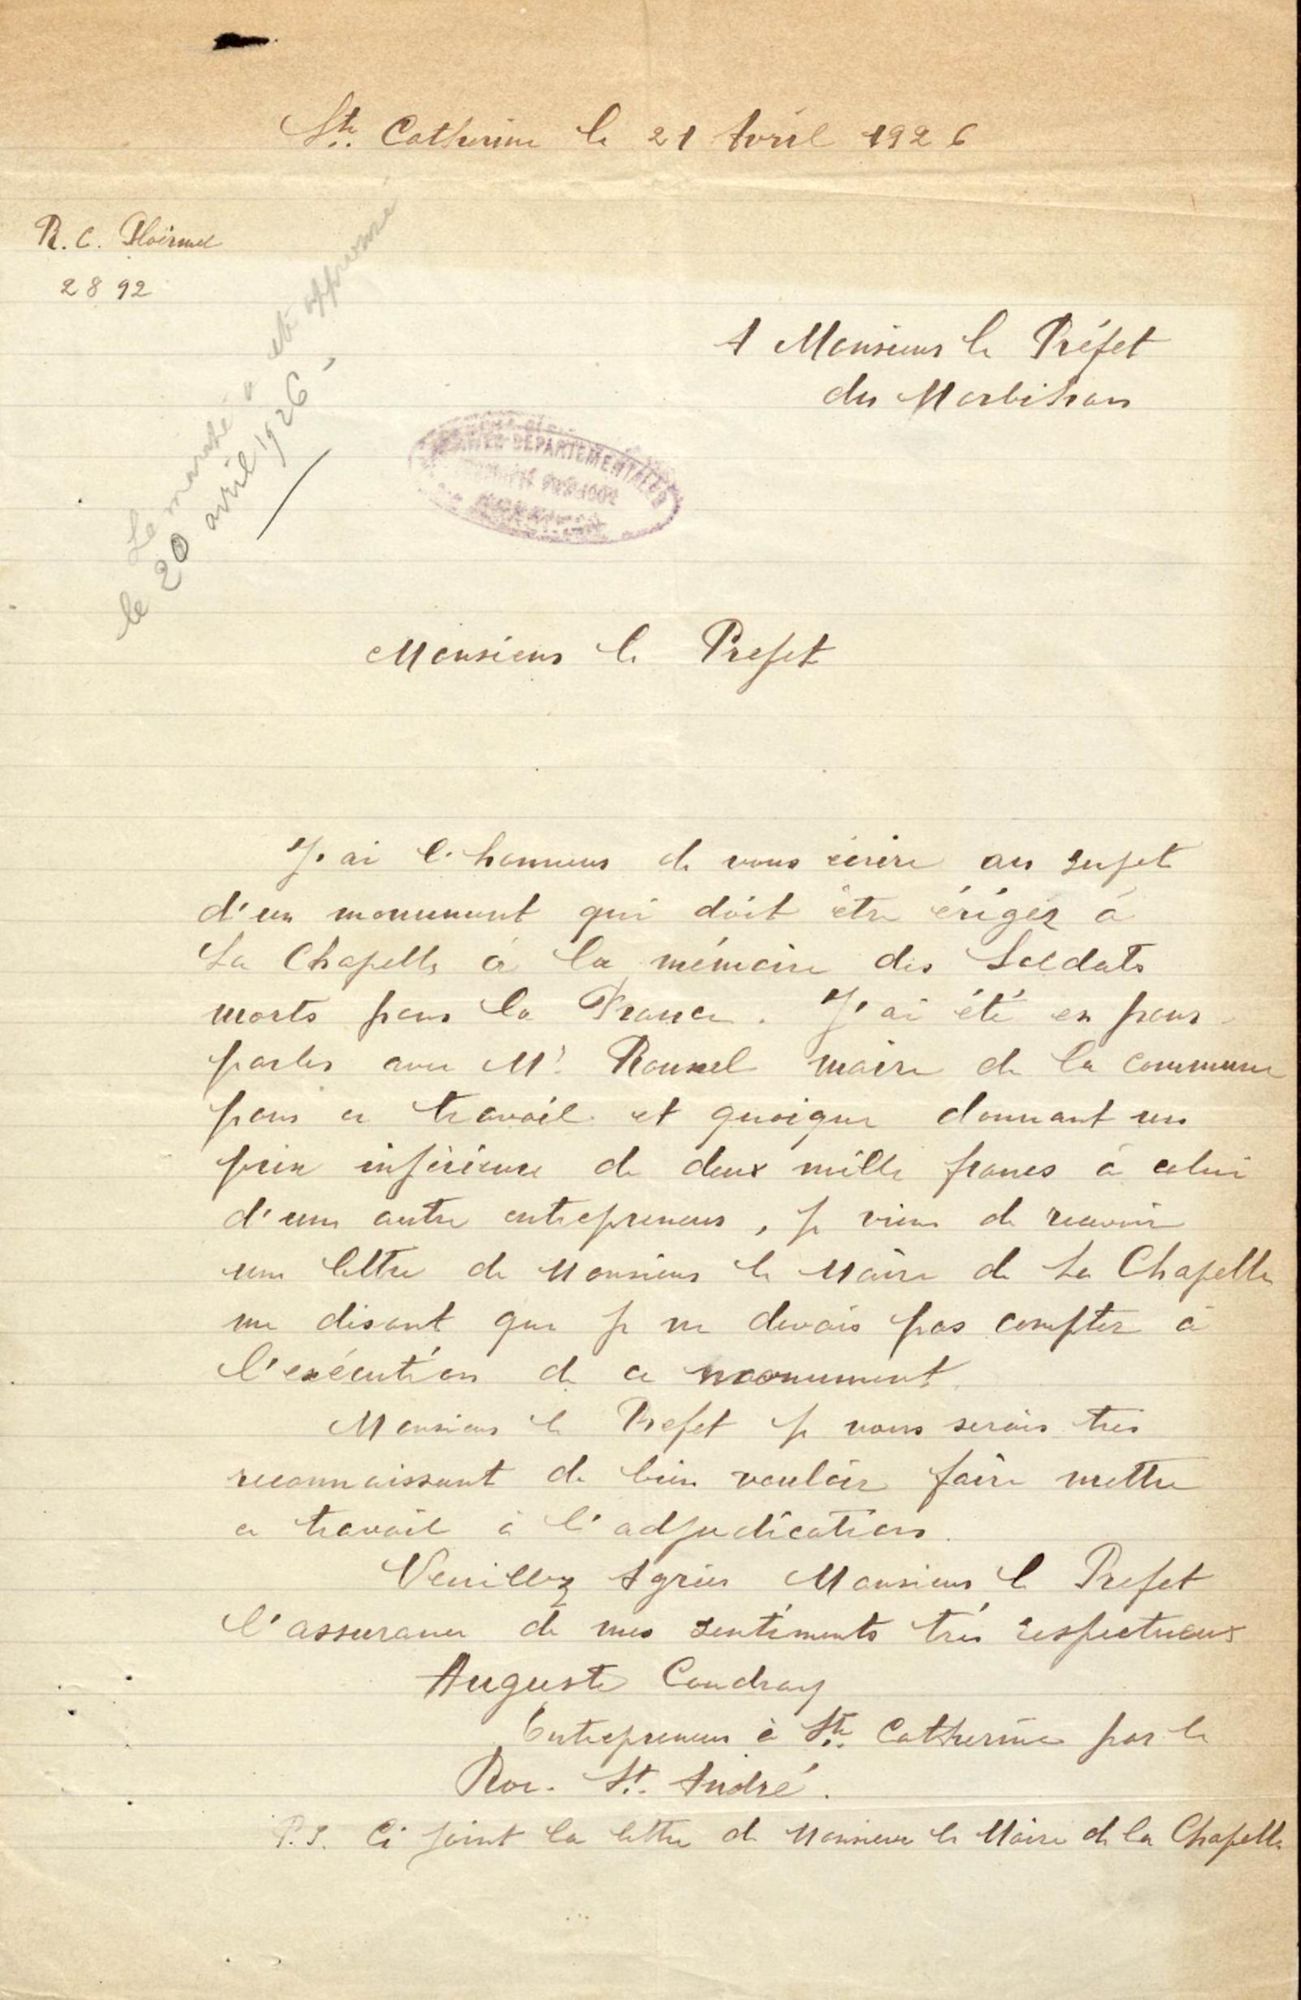 Ste Catherine le 21 Avril 1926
R.C. Ploërmel
2892
Le marché a été approuvé
le 20 avril 1926 -
A Monsieur le Préfet
du Morbihan
DÉPARTEMENTALES
Monsieur le Prefet
J'ai l'honneur de vous écrire au sujet
d'un monument qui doit être érigér à
La Chapelle à la mémoire des Soldats
morts pour la France. J'ai été en pour-
parler avec Mr Rouxel maire de la commune
pour ce travail et quoique donnant un
prix inférieure de deux mille francs à celui
d'un autre entrepreneur, je viens de recevoir
une lettre de Monsieur le Maire de La Chapelle
me disant que je ne devais pas compter à
l'exécution de ce monument.
Monsieur le Prefet je vous serais très
reconnaissant de bien vouloir faire mettre
ce travail à l'adjudication.
Veuillez Agréer Monsieur le Prefet
l'assurance de mes sentiments très respectueux
Auguste Coudray
Entrepreneur à Ste Catherine par le
Roc-St André.
P.S. Ci joint la lettre de Monsieur le Maire de la Chapelle